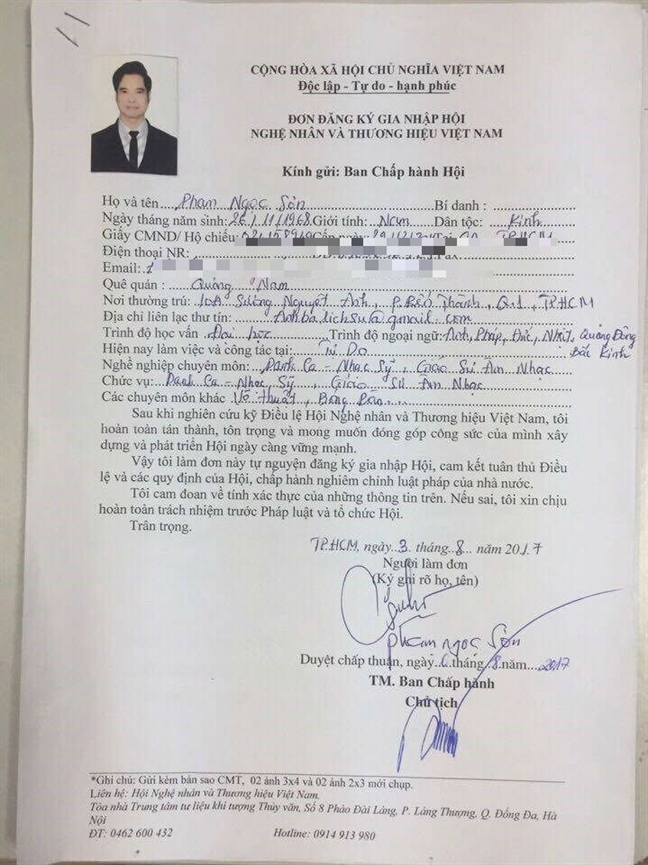 CỘNG HÒA XÃ HỘI CHỦ NGHĨA VIỆT NAM
Độc lập - Tự do - hạnh phúc
ĐƠN ĐĂNG KÝ GIA NHẬP HỘI
NGHỆ NHÂN VÀ THƯƠNG HIỆU VIỆT NAM
Kính gửi: Ban Chấp hành Hội
Họ và tên Phạm Ngọc Sơn Bí danh :
Ngày tháng năm sinh: 26/11/1968 Giới tính: Nam Dân tộc: Kinh
Giấy CMND/ Hộ chiếu: TP.HCM
Điện thoại NR:
Email:
Quê quán : Quảng Nam
Nơi thường trú: 10A Sương Nguyệt Ánh, P. Bến Thành, Q1, TPHCM
Địa chỉ liên lạc thư tín: Anhbalichsu@gmail.com
Trình độ học vấn Đại học Trình độ ngoại ngữ: Anh, Pháp, Đức, Nhật, Quảng Đông
Bắc Kinh
Hiện nay làm việc và công tác tại: Tự Do
Nghề nghiệp chuyên môn: Danh Ca - Nhạc Sỹ, Giáo Sư Âm Nhạc
Chức vụ: Danh Ca - Nhạc Sỹ, Giáo Sư Âm Nhạc
Các chuyên môn khác Võ thuật, Bóng Bàn
Sau khi nghiên cứu kỹ Điều lệ Hội Nghệ nhân và Thương hiệu Việt Nam, tôi
hoàn toàn tán thành, tôn trọng và mong muốn đóng góp công sức của mình xây
dựng và phát triển Hội ngày càng vững mạnh.
Vậy tôi làm đơn này tự nguyện đăng ký gia nhập Hội, cam kết tuân thủ Điều
lệ và các quy định của Hội, chấp hành nghiêm chỉnh luật pháp của nhà nước.
Tôi cam đoan về tính xác thực của những thông tin trên. Nếu sai, tôi xin chịu
hoàn toàn trách nhiệm trước Pháp luật và tổ chức Hội.
Trân trọng.
TP.HCM, ngày 3 tháng 8 năm 2017
Người làm đơn
(Ký ghi rõ họ, tên)
Phạm Ngọc Sơn
Duyệt chấp thuận, ngày 6 tháng 8 năm 2017
TM. Ban Chấp hành
Chủ tịch
*Ghi chú: Gửi kèm bản sao CMT, 02 ảnh 3x4 và 02 ảnh 2x3 mới chụp.
Liên hệ: Hội Nghệ nhân và Thương hiệu Việt Nam.
Tòa nhà Trung tâm tư liệu khí tượng Thủy văn, Số 8 Pháo Đài Láng, P. Láng Thượng, Q. Đống Đa, Hà
Nội
ĐT: 0462 600 432 Hotline: 0914 913 980